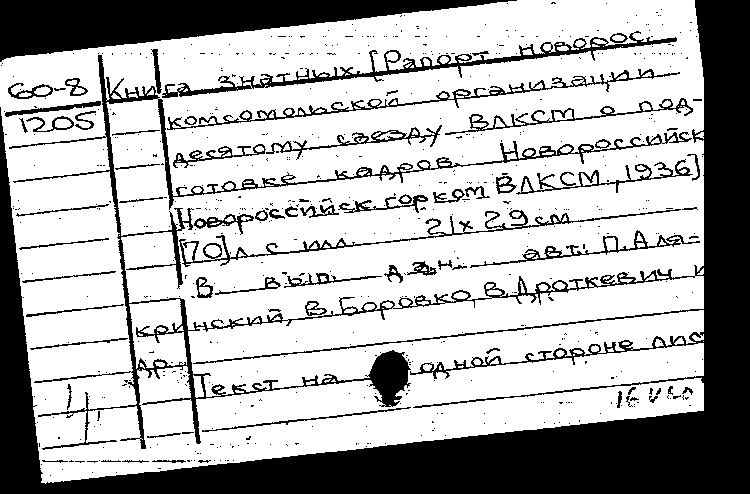 60-8
1205
Книга знатных. [Рапорт новорос.
комсомольской организации
десятому съезду ВЛКСМ о под-
готовке кадров. Новороссийск
Новороссийск. горком ВЛКСМ., 1936]
[70]л. с илл. 21х 29 см
В вып. дан. авт.: П. Аля=
кринский, В. Боровко, В. Дроткевич и
др.
Текст на одной стороне лис
4.